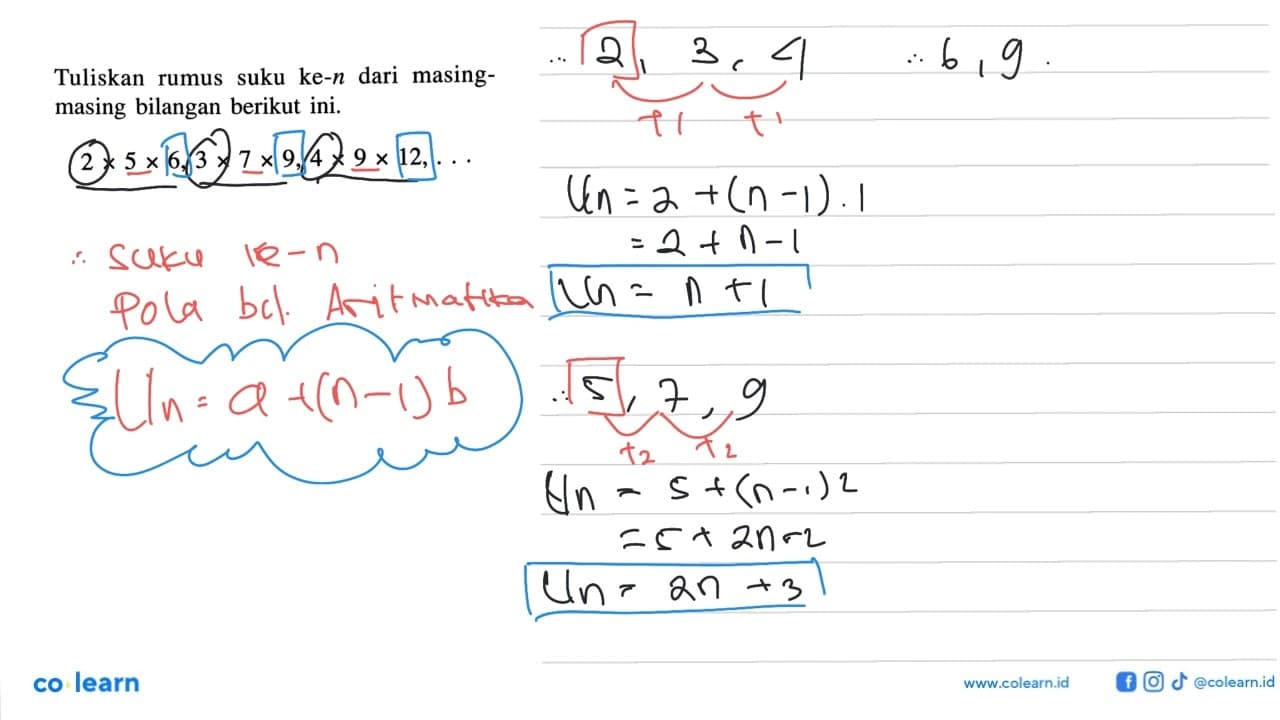 Tuliskan rumus suku ke-n dari masing-
masing bilangan berikut ini.
2 × 5 × 6, 3 × 7 × 9, 4 × 9 × 12, . . .
∴ suku ke-n
Pola bil. Aritmatika
Un = a + (n-1) b
∴ 2, 3, 4
+1 +1
Un = 2 + (n-1) . 1
= 2 + n-1
Un = n +1
∴ 5, 7, 9
+2 +2
Un = 5 + (n-1) 2
= 5 + 2n-2
Un = 2n +3
∴ 6, 9.
co learn
www.colearn.id
@colearn.id